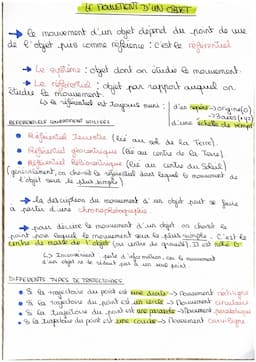 LE MOUVEMENT D'UN OBJET
→ le mouvement d'un objet dépend du point de vue
de l'objet pris comme référence : c'est le référentiel
→ Le système : objet dont on étudie le mouvement.
→ Le référentiel : objet par rapport auquel on
étudie le mouvement.
↳ le référentiel est toujours muni : d'un repère → origine (O)
→ 3 axes
d'une échelle de temps
REFERENTIELS COURAMMENT UTILISÉS
• Référentiel Terrestre (lié au sol de la Terre).
• Référentiel géocentrique (lié au centre de la Terre)
• Référentiel Héliocentrique (lié au centre du Soleil)
(généralement, on choisit le référentiel dans lequel le mouvement de
l'objet sera le plus simple).
→ la description du mouvement d'un objet peut se faire
à partir d'une chronophotographie.
→ pour décrire le mouvement d'un objet on choisit le
point pour lequel le mouvement sera le plus simple. C'est le
centre de masse de l'objet (ou centre de gravité). Il est noté G
↳ Inconvénient : perte d'informations, car le mouvement
d'un objet ne se réduit pas à un seul point.
DIFFÉRENTS TYPES DE TRAJECTOIRES
• Si la trajectoire du point est une droite → Mouvement rectiligne
• Si la trajectoire du point est un cercle → Mouvement circulaire
• Si la trajectoire du point est une parabole → Mouvement parabolique
• Si la trajectoire du point est une courbe → Mouvement curviligne